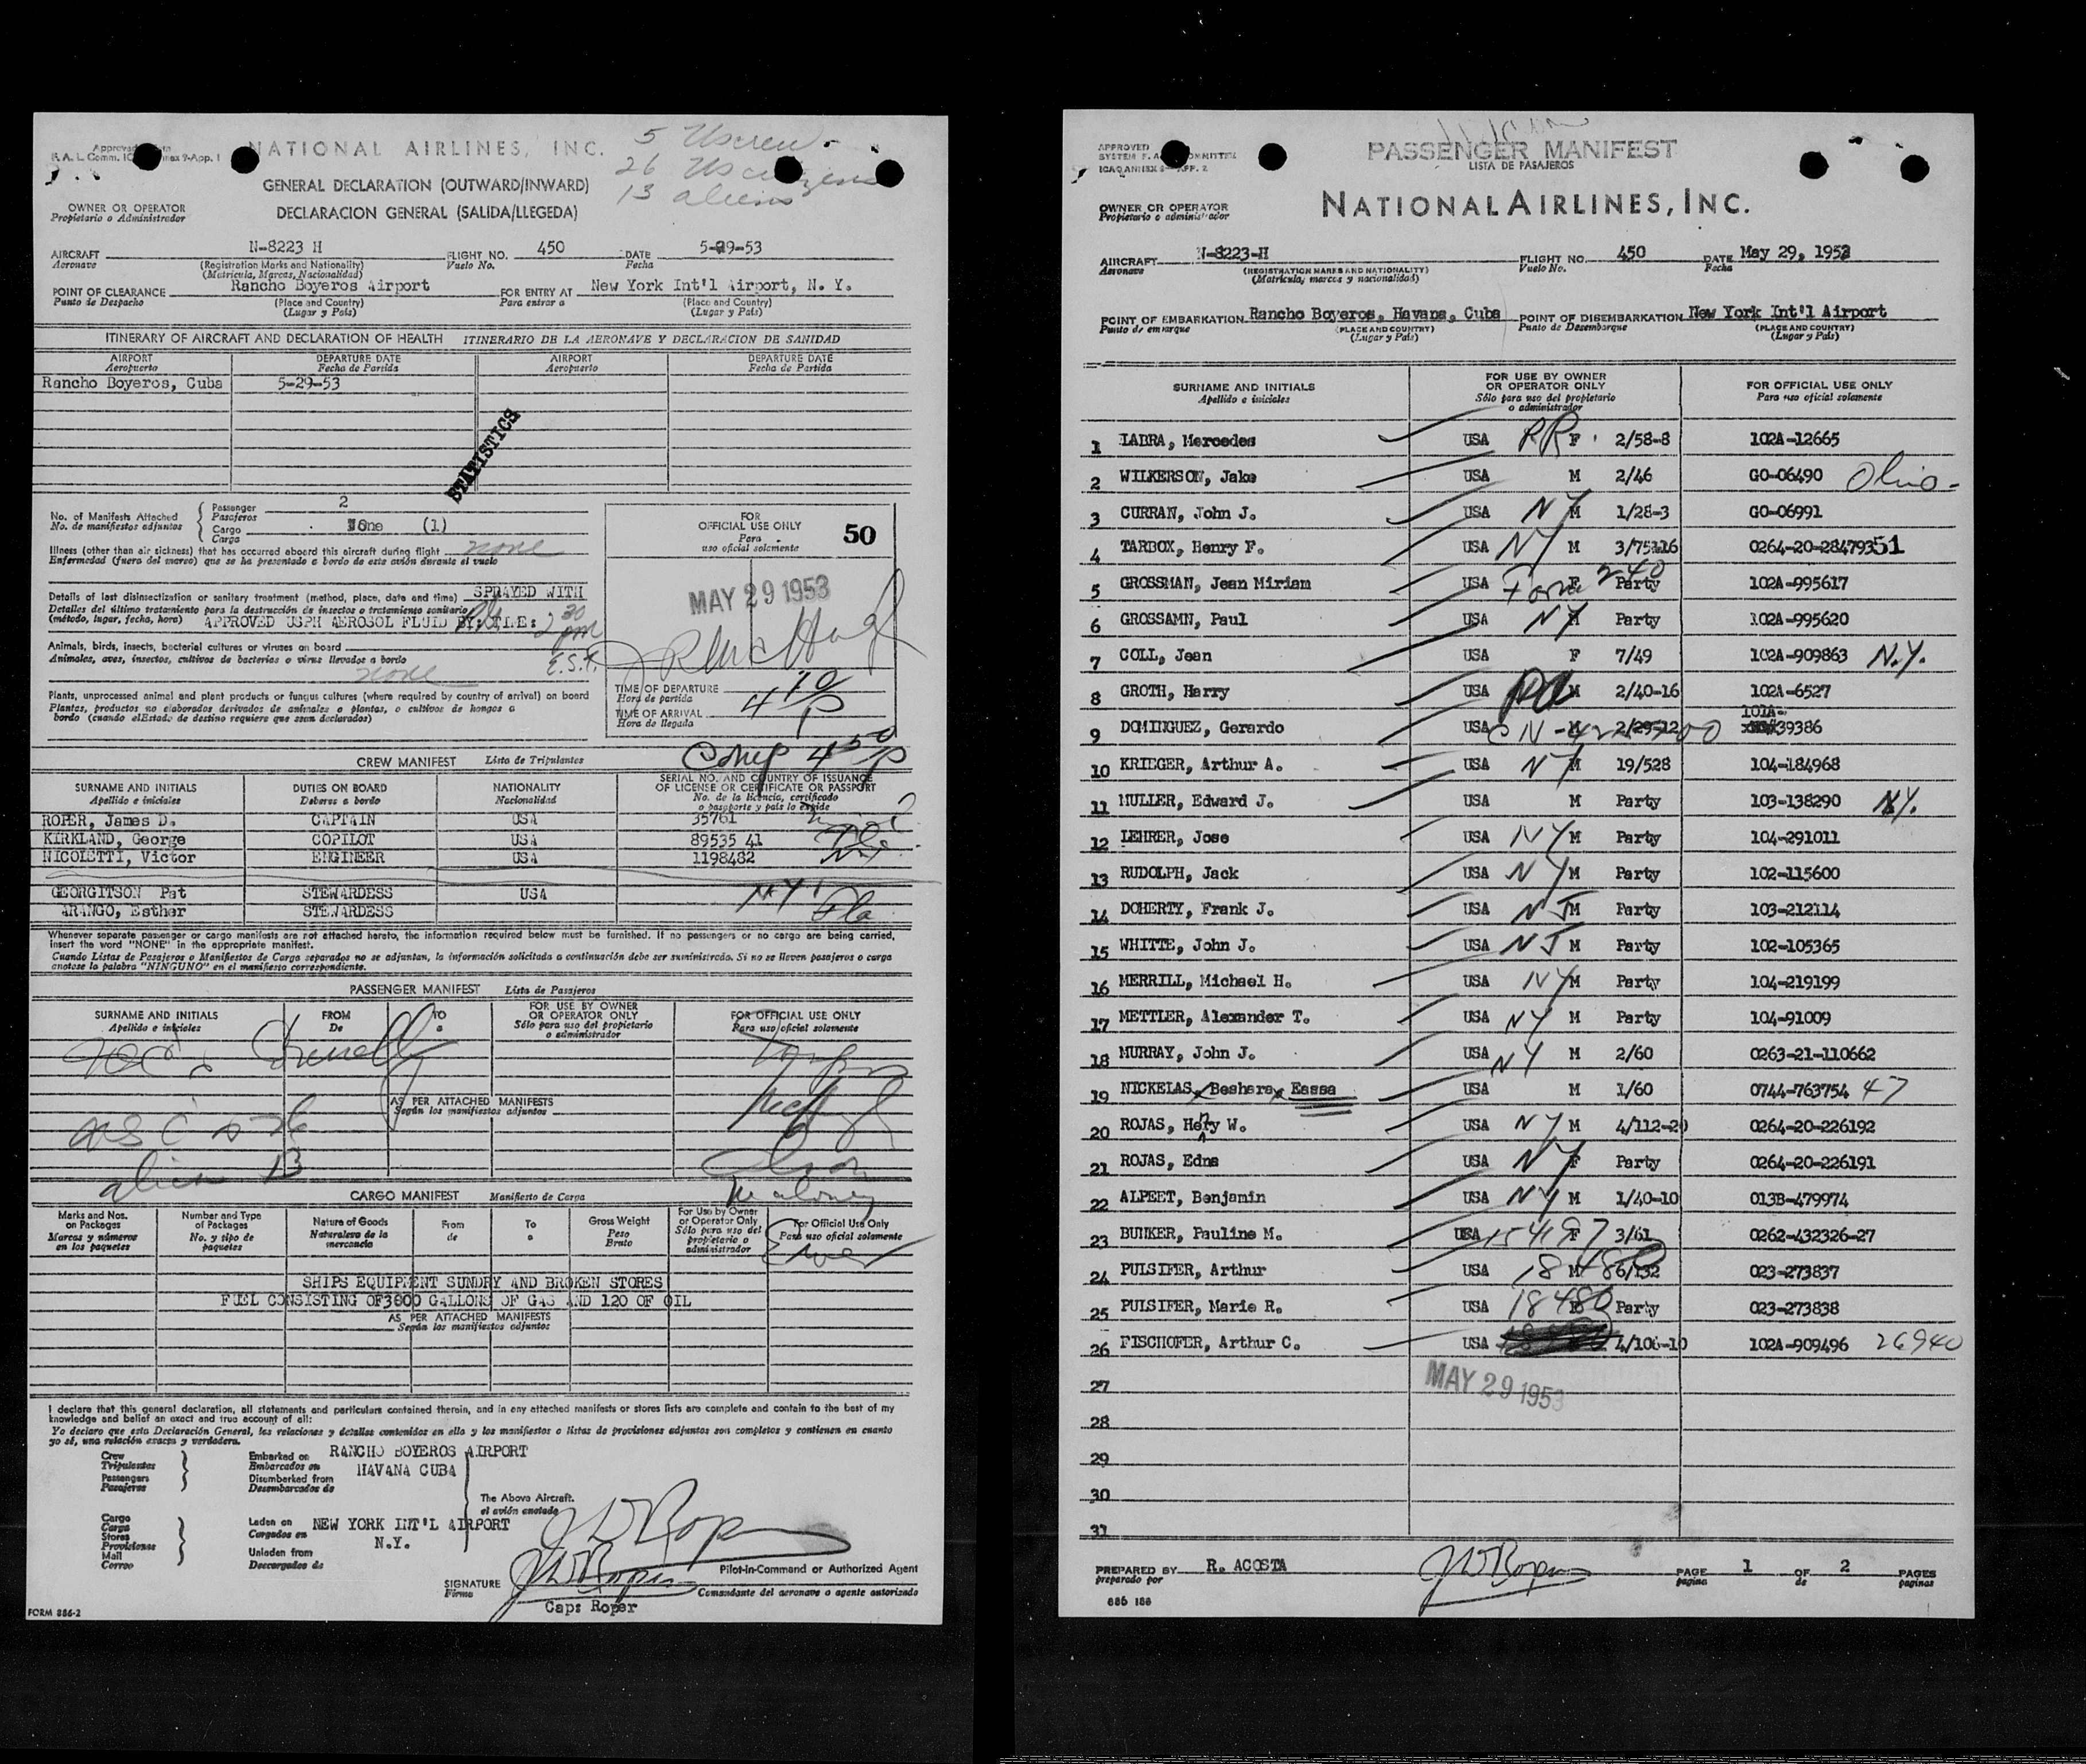 Approved
F. A. L. Comm. ICAO Annex 9-App. 1
NATIONAL AIRLINES, INC.
5 Uscrew
26 Us citizens
13 aliens
GENERAL DECLARATION (OUTWARD/INWARD)
DECLARACION GENERAL (SALIDA/LLEGEDA)
OWNER OR OPERATOR
Propietario o Administrador
AIRCRAFT N-8223 H FLIGHT NO. 450 DATE 5-29-53
Aeronave (Registration Marks and Nationality) Vuelo No. Fecha
(Matricula, Marcas, Nacionalidad)
POINT OF CLEARANCE Rancho Boyeros Airport FOR ENTRY AT New York Int'l Airport, N. Y.
Punto de Despacho (Place and Country) Para entrar a (Place and Country)
(Lugar y País) (Lugar y País)
ITINERARY OF AIRCRAFT AND DECLARATION OF HEALTH ITINERARIO DE LA AERONAVE Y DECLARACION DE SANIDAD
AIRPORT DEPARTURE DATE AIRPORT DEPARTURE DATE
Aeropuerto Fecha de Partida Aeropuerto Fecha de Partida
Rancho Boyeros, Cuba 5-29-53
STATISTICS
No. of Manifests Attached Passenger 2
No. de manifiestos adjuntos Pasajeros
Cargo None (1)
Carga
Illness (other than air sickness) that has occurred aboard this aircraft during flight none
Enfermedad (fuera del mareo) que se ha presentado a bordo de este avión durante el vuelo
Details of last disinsectization or sanitary treatment (method, place, date and time) SPRAYED WITH
Detalles del último tratamiento para la destrucción de insectos o tratamiento sanitario
(método, lugar, fecha, hora) APPROVED USPH AEROSOL FLUID BY: TIME: 2 30 pm
E.S.T.
Animals, birds, insects, bacterial cultures or viruses on board
Animales, aves, insectos, cultivos de bacterias o virus llevados a bordo
none
Plants, unprocessed animal and plant products or fungus cultures (where required by country of arrival) on board
Plantas, productos no elaborados derivados de animales o plantas, o cultivos de hongos a
bordo (cuando elEstado de destino requiere que sean declarados)
FOR
OFFICIAL USE ONLY
Para
uso oficial solamente
50
MAY 29 1953
TIME OF DEPARTURE
Hora de partida
TIME OF ARRIVAL 4 10 P
Hora de llegada
Comp 4 50 P
CREW MANIFEST Lista de Tripulantes
SURNAME AND INITIALS DUTIES ON BOARD NATIONALITY SERIAL NO. AND COUNTRY OF ISSUANCE
OF LICENSE OR CERTIFICATE OR PASSPORT
Apellido e iniciales Deberes a bordo Nacionalidad No. de la licencia, certificado
o pasaporte y país lo expide
ROPER, James D. CAPTAIN USA 35761
KIRKLAND, George COPILOT USA 89535 41
NICOLETTI, Victor ENGINEER USA 1198482
GEORGITSON Pat STEWARDESS USA NY
ARANGO, Esther STEWARDESS Fla
Whenever separate passenger or cargo manifests are not attached hereto, the information required below must be furnished. If no passengers or no cargo are being carried,
insert the word "NONE" in the appropriate manifest.
Cuando Listas de Pasajeros o Manifiestos de Carga separados no se adjuntan, la información solicitada a continuación debe ser suministrada. Si no se lleven pasajeros o carga
anotese la palabra "NINGUNO" en el manifiesto correspondiente.
PASSENGER MANIFEST Lista de Pasajeros
SURNAME AND INITIALS FROM TO FOR USE BY OWNER OR OPERATOR ONLY FOR OFFICIAL USE ONLY
Apellido e iniciales De a Sólo para uso del propietario o administrador Para uso oficial solamente
AS PER ATTACHED MANIFESTS
Según los manifiestos adjuntos
alien 13
Olson
Maloney
CARGO MANIFEST Manifiesto de Carga
Marks and Nos. on Packages Number and Type of Packages Nature of Goods From To Gross Weight For Use by Owner or Operator Only For Official Use Only
Marcas y números en los paquetes No. y tipo de paquetes Naturaleza de la mercancia de a Peso Bruto Sólo para uso del propietario o administrador Para uso oficial solamente
SHIPS EQUIPMENT SUNDRY AND BROKEN STORES
FUEL CONSISTING OF3800 GALLONS OF GAS AND 120 OF OIL
AS PER ATTACHED MANIFESTS
Según los manifiestos adjuntos
I declare that this general declaration, all statements and particulars contained therein, and in any attached manifests or stores lists are complete and contain to the best of my
knowledge and belief an exact and true account of all:
Yo declaro que esta Declaración General, las relaciones y detalles contenidos en ella y los manifiestos o listas de provisiones adjuntos son completos y contienen en cuanto
yo sé, una relación exacta y verdadera.
Crew Embarked on RANCHO BOYEROS AIRPORT
Tripulantes Embarcados en HAVANA CUBA
Passengers Disembarked from
Pasajeros Desembarcados de
The Above Aircraft.
el avión anotado
Cargo Laden on NEW YORK INT'L AIRPORT
Carga Cargados en N.Y.
Stores
Provisiones Unladen from
Mail Descargados de
Correo
J D Roper
Pilot-in-Command or Authorized Agent
SIGNATURE J D Roper Comandante del aeronave o agente autorizado
Firma
Capt Roper
FORM 886-2
APPROVED
SYSTEM F. A. L. COMMITTEE
ICAO ANNEX 9-APP. 2
PASSENGER MANIFEST
LISTA DE PASAJEROS
OWNER OR OPERATOR NATIONAL AIRLINES, INC.
Propietario o administrador
AIRCRAFT N-8223-H FLIGHT NO. 450 DATE May 29, 1953
Aeronave (REGISTRATION MARKS AND NATIONALITY) Vuelo No. Fecha
(Matricula, marcas y nacionalidad)
POINT OF EMBARKATION Rancho Boyeros, Havana, Cuba POINT OF DISEMBARKATION New York Int'l Airport
Punto de emarque (PLACE AND COUNTRY) Punto de Desembarque (PLACE AND COUNTRY)
(Lugar y País) (Lugar y País)
SURNAME AND INITIALS FOR USE BY OWNER OR OPERATOR ONLY FOR OFFICIAL USE ONLY
Apellido e iniciales Sólo para uso del propietario o administrador Para uso oficial solamente
1 LABRA, Mercedes USA RR F 2/58-8 102A-12665
2 WILKERSON, Jake USA M 2/46 GO-06490 Ohio-
3 CURRAN, John J. USA NY M 1/28-3 GO-06991
4 TARBOX, Henry F. USA NY M 3/75116 0264-20-28479351
5 GROSSMAN, Jean Miriam USA F 240 Party 102A-995617
6 GROSSAMN, Paul USA NY M Party 102A-995620
7 COLL, Jean USA F 7/49 102A-909863 N.Y.
8 GROTH, Harry USA Pa M 2/40-16 102A-6527
9 DOMINGUEZ, Gerardo USA M 2/29-12 101A-39386
10 KRIEGER, Arthur A. USA NY M 19/528 104-184968
11 MULLER, Edward J. USA M Party 103-138290 NY.
12 LEHRER, Jose USA NY M Party 104-291011
13 RUDOLPH, Jack USA NY M Party 102-115600
14 DOHERTY, Frank J. USA NJ M Party 103-212114
15 WHITTE, John J. USA NJ M Party 102-105365
16 MERRILL, Michael H. USA NY M Party 104-219199
17 METTLER, Alexander T. USA NY M Party 104-91009
18 MURRAY, John J. USA NY M 2/60 0263-21-110662
19 NICKELAS, Beshara Eassa USA M 1/60 0744-763754 47
20 ROJAS, Henry W. USA NY M 4/112-20 0264-20-226192
21 ROJAS, Edna USA NY F Party 0264-20-226191
22 ALPEET, Benjamin USA NY M 1/40-10 013B-479974
23 BUNKER, Pauline M. USA 154197 F 3/61 0262-432326-27
24 PULSIFER, Arthur USA 18480 M 6/132 023-273837
25 PULSIFER, Marie R. USA 18480 F Party 023-273838
26 FISCHOFER, Arthur C. USA 4/106-10 102A-909496 26940
27
MAY 29 1953
28
29
30
31
PREPARED BY R. ACOSTA J D Roper PAGE 1 OF 2 PAGES
preparado por pagina de paginas
886 186